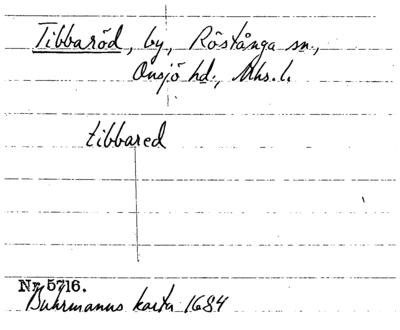 Tibbaröd, by, Röstånga sn.,
Onsjö hd., Mhs. l.
tibbared
Nr. 5716.
Buhrmanns karta 1684